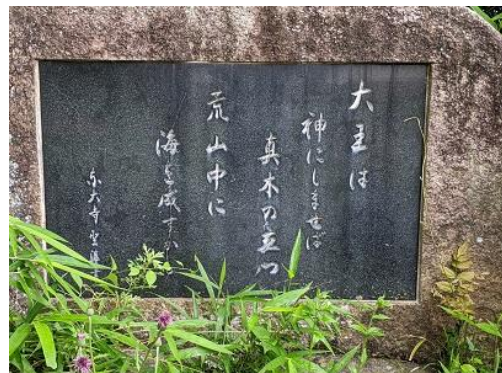 大王は
神にしませば
真木の立つ
荒山中に
海を成すか
東大寺